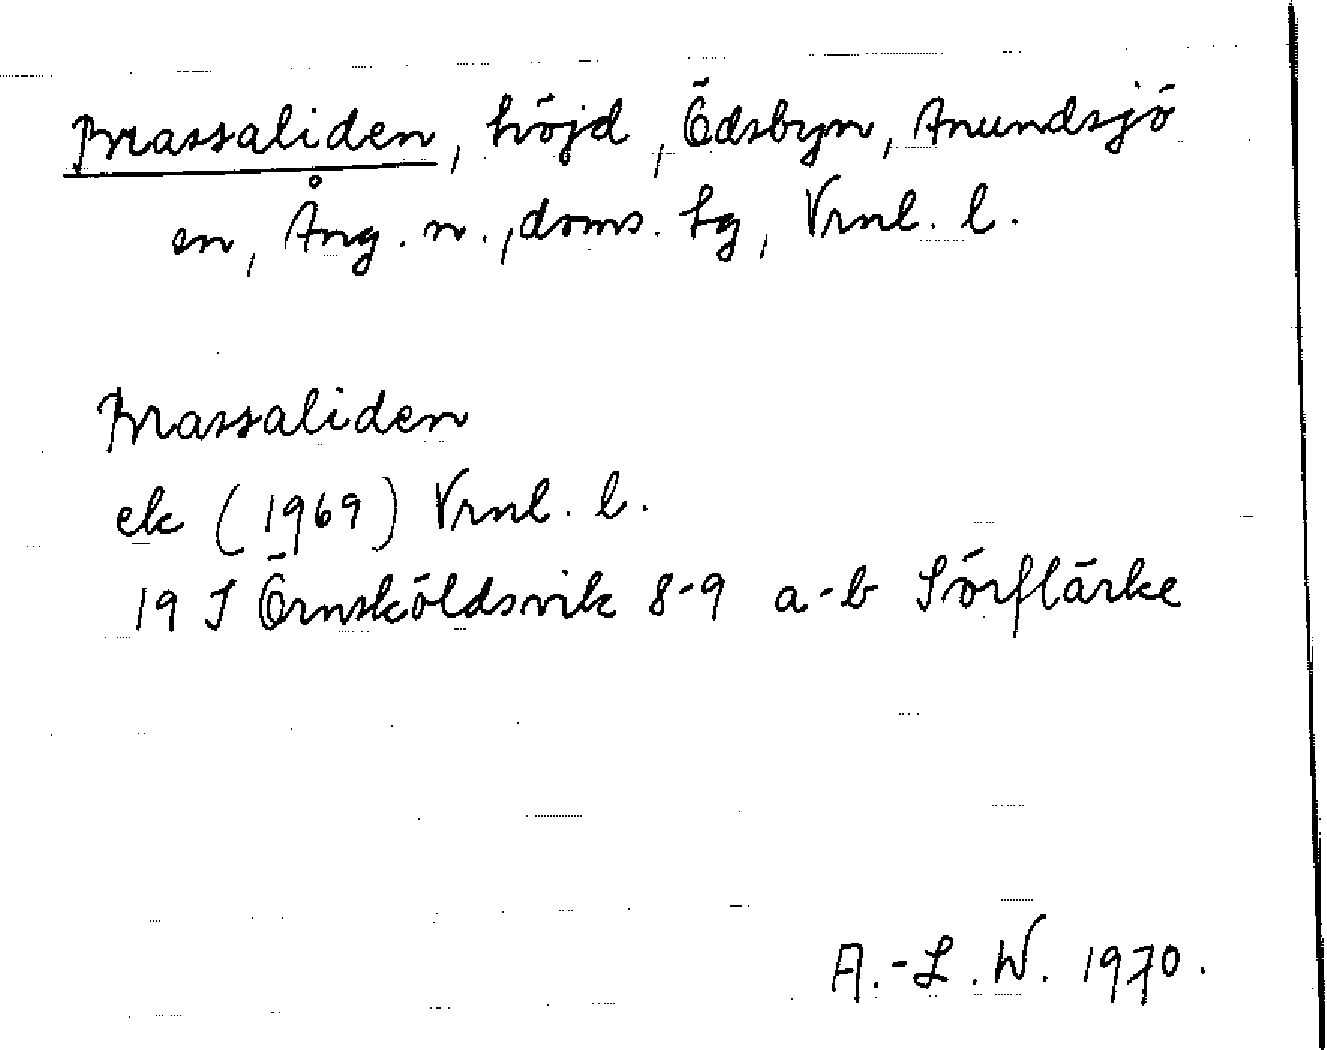 Brassaliden, höjd, Ödsbyn, Anundsjö
sn, Ång. n., doms. lg, Vrnl. l.
Brassaliden
ek (1969) Vrnl. l.
19 J Örnsköldsvik 8-9 a-b Sörflärke
A.-L. W. 1970.